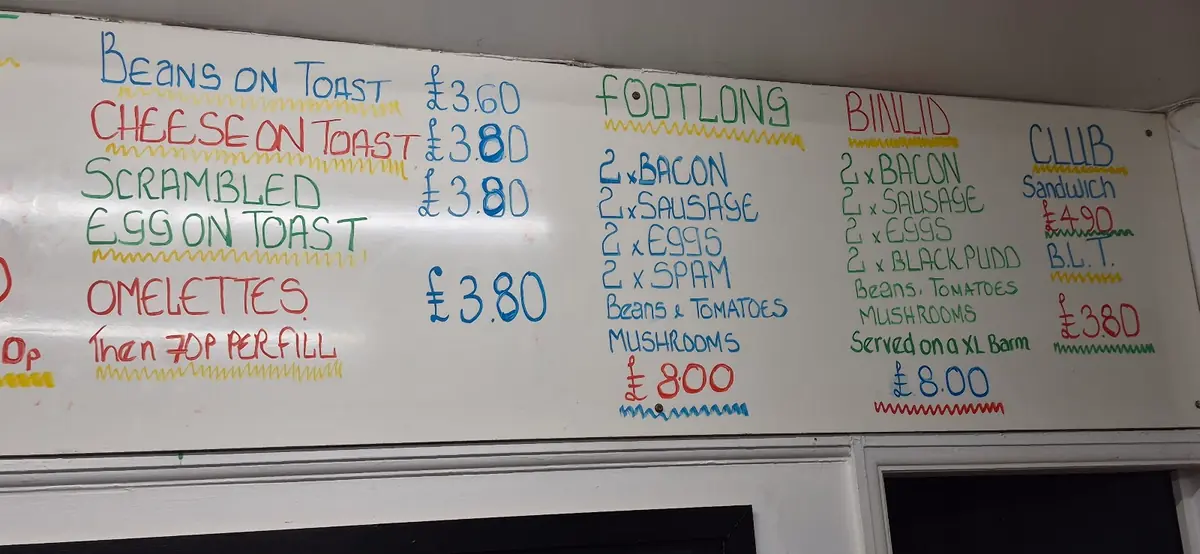 0p
BEANS ON TOAST £3.60
CHEESE ON TOAST £3.80
SCRAMBLED £3.80
EGG ON TOAST
OMELETTES £3.80
Then 70P PER FILL
FOOTLONG
2 x BACON
2 x SAUSAGE
2 x EGGS
2 x SPAM
Beans & TOMATOES
MUSHROOMS
£8.00
BINLID
2 x BACON
2 x SAUSAGE
2 x EGGS
2 x BLACK PUDD
Beans. TOMATOES
MUSHROOMS
Served on a XL Barm
£8.00
CLUB
Sandwich
£4.90
B.L.T.
£3.80